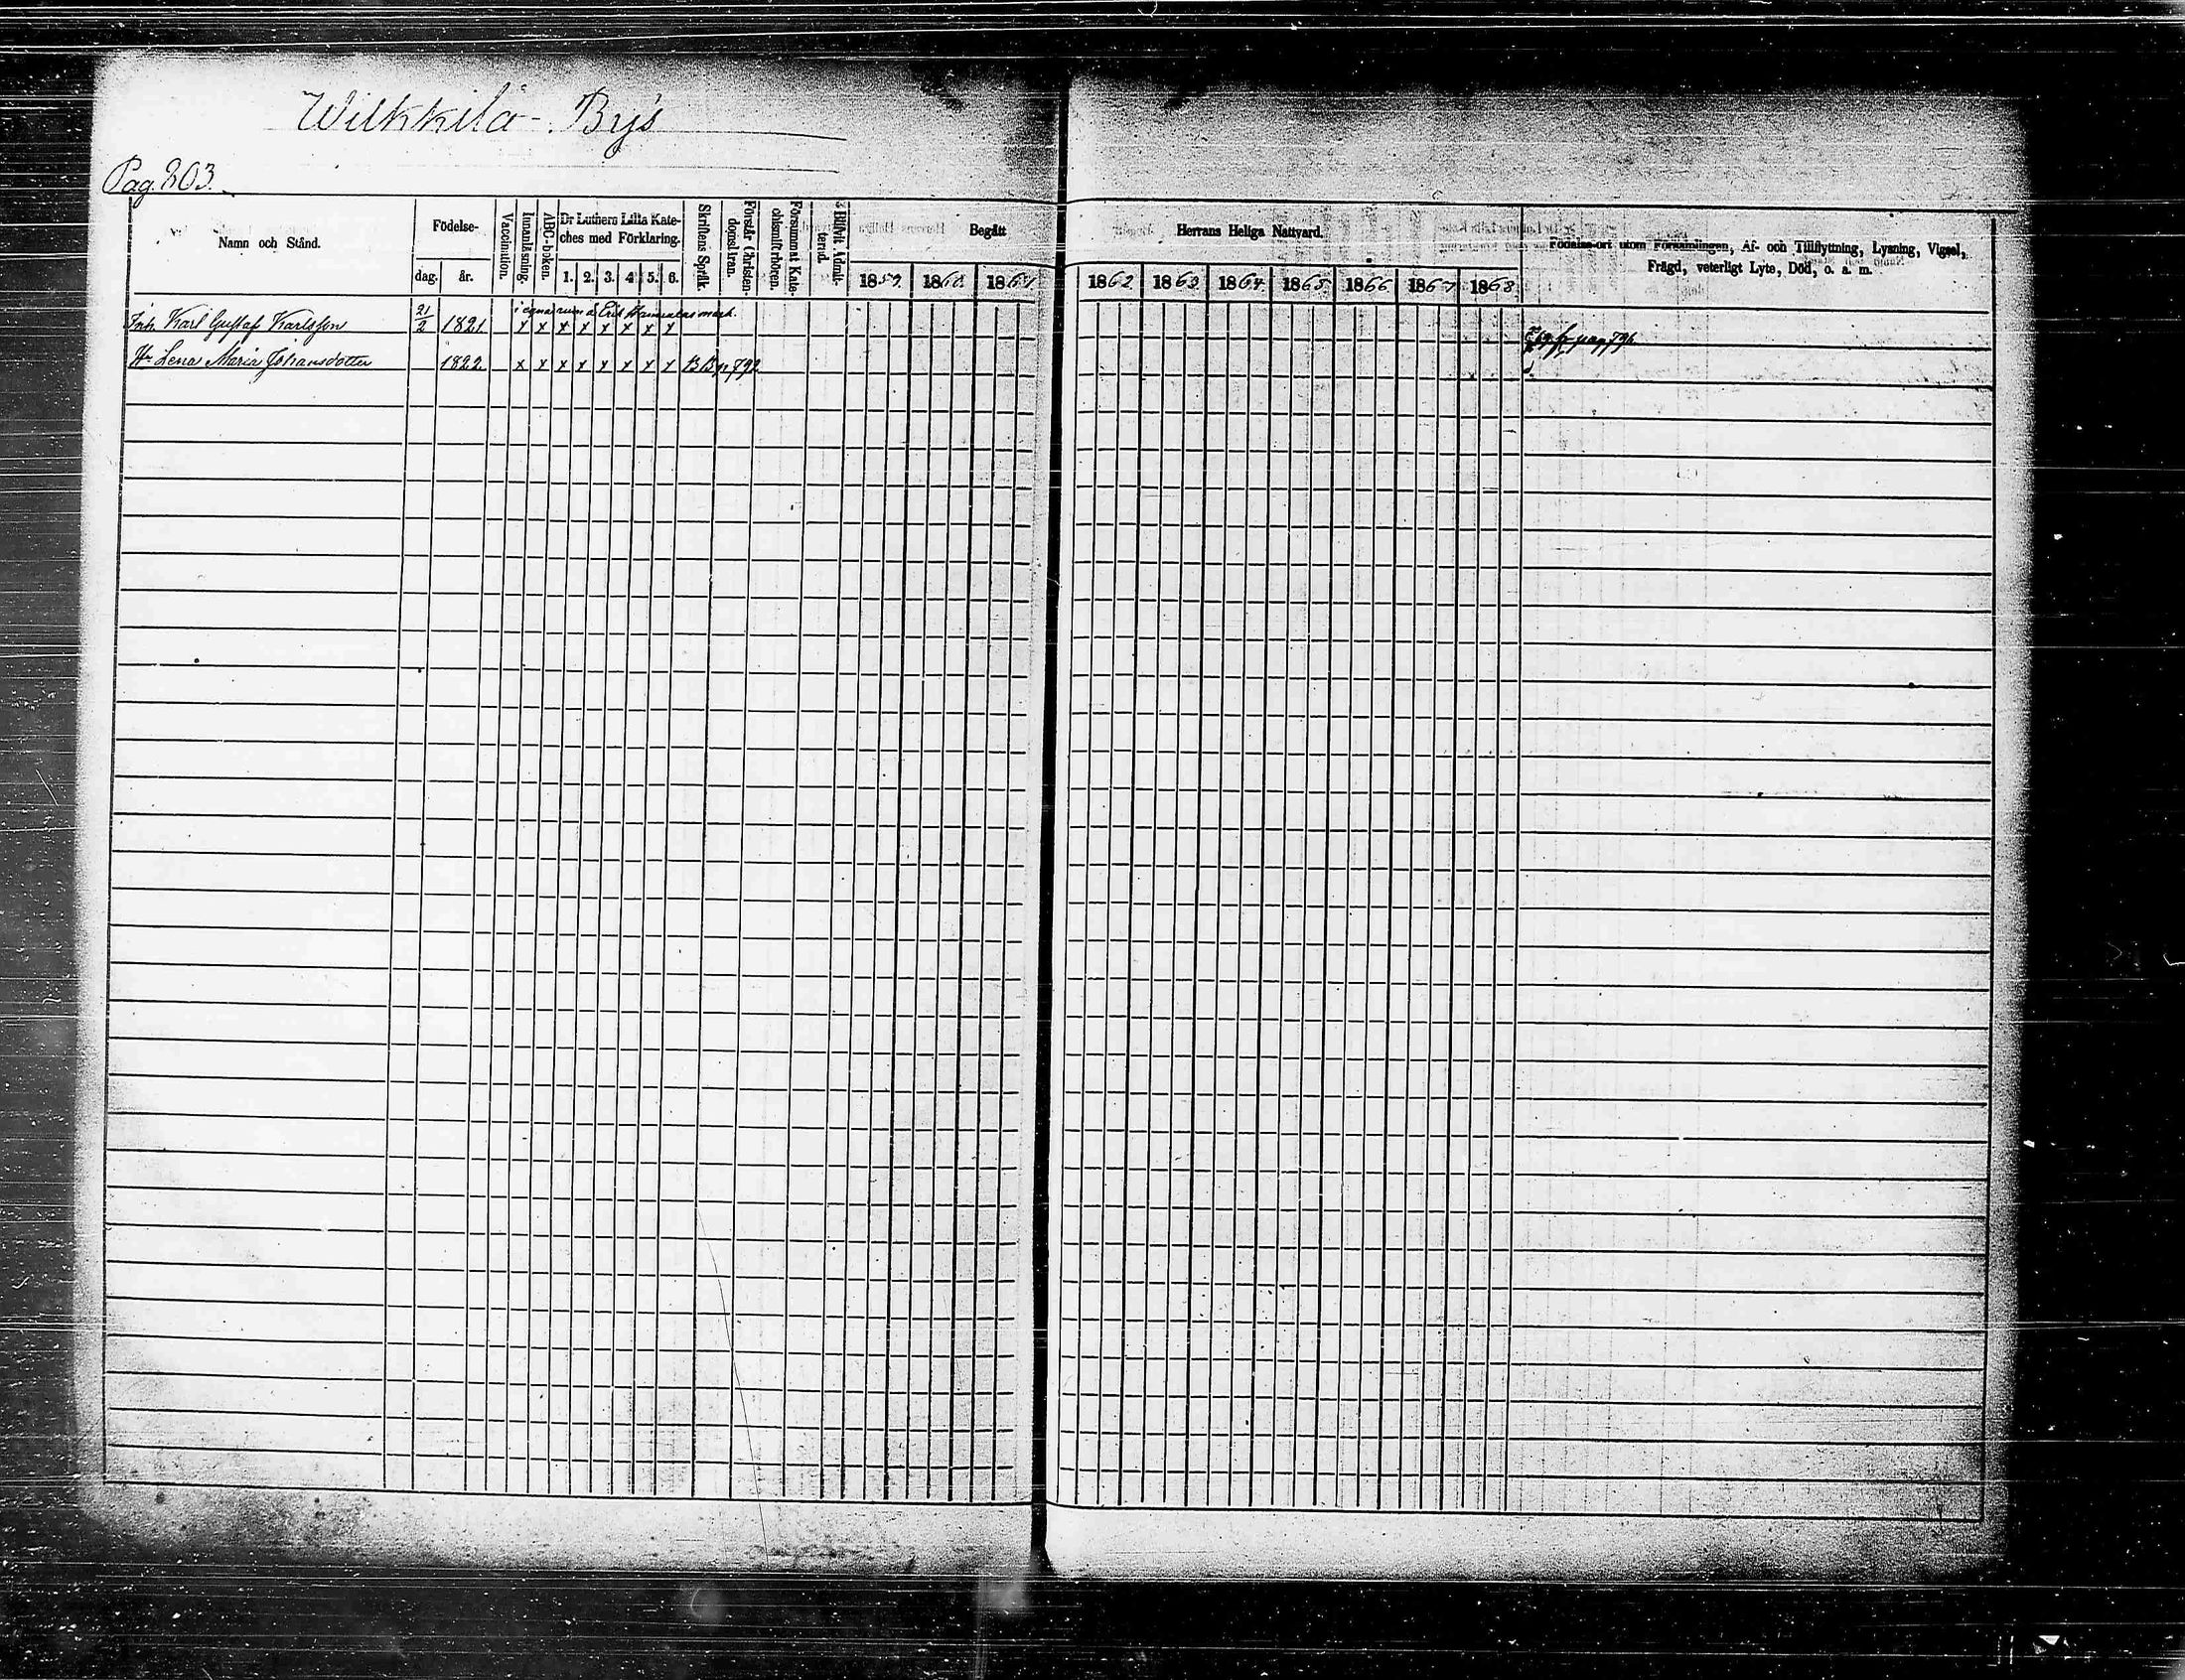 Wilkkilä - Bys
Pag. 803.
Namn och Stånd.
Födelse-
dag.
år.
Vaccination.
Innanläsning.
ABC-boken.
Dr Luthers Lilla Kate-
ches med Förklaring.
1. 2. 3. 4. 5. 6.
Skriftens Språk.
Förstår Christen-
domsläran.
Försummat Kate-
chismiförhören.
Blifvit Admit-
terad.
Begått
1859. 1860. 1861
Herrans Heliga Nattvard.
1862 1863 1864. 1865. 1866 1867 1868
Födelse-ort utom Församlingen, Af- och Tillflyttning, Lysning, Vigsel,
Frägd, veterligt Lyte, Död, o. a. m.
i egna rum å Erik mark.
Inh. Karl Gustaf Karlsson 21/2 1821. x x x x x x x x
pag 796.
H. Lena Maria Johansdotter 1822. x x x x x x x x BB p. 792